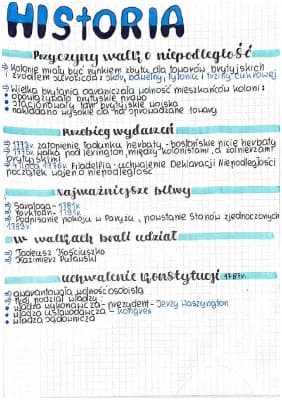 HISTORIA
Przyczyny walki o niepodległość
⇒ Kolonie miały być rynkiem zbytu dla towarów brytyjskich
i źródłem surowców: skór, bawełny, tytoniu i trzciny cukrowej
⇒ Wielka Brytania ograniczała wolność mieszkańców kolonii:
• obowiązywało brytyjskie prawo
• stacjonowały tam brytyjskie wojska
• nakładano wysokie cła na sprowadzane towary
Przebieg wydarzeń
⇒ 1773r. zatopienie ładunku herbaty - bostońskie picie herbaty
⇒ 1775r. walka pod Lexington, między kolonistami, a żołnierzami
brytyjskimi
⇒ 4 lipca 1776r. Filadelfia - uchwalenie Deklaracji Niepodległości
początek wojen o niepodległość
Najważniejsze bitwy
⇒ Saratoga - 1781r.
⇒ Yorktown - 1781r.
⇒ Podpisanie pokoju w Paryżu, powstanie Stanów Zjednoczonych
1783r.
w walkach brali udział
⇒ Tadeusz Kościuszko
⇒ Kazimierz Pułaski
uchwalenie konstytucji 1787r.
⇒ gwarantowała wolność osobistą
• trój podział władzy
• władza wykonawcza - prezydent - Jerzy Waszyngton
• władza ustawodawcza - kongres
• władza sądownicza